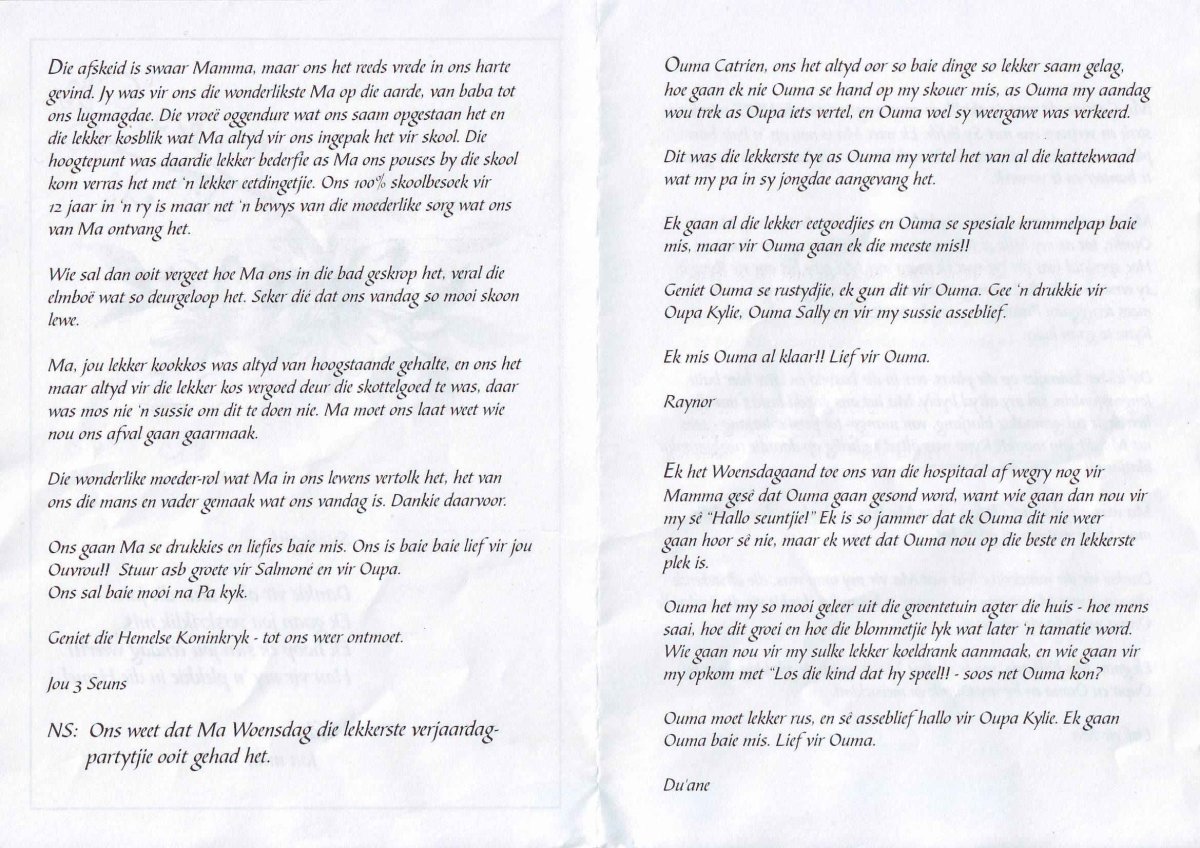 Die afskeid is swaar Mamma, maar ons het reeds vrede in ons harte
gevind. Jy was vir ons die wonderlikste Ma op die aarde, van baba tot
ons lugmagdae. Die vroeë oggendure wat ons saam opgestaan het en
die lekker kosblik wat Ma altyd vir ons ingepak het vir skool. Die
hoogtepunt was daardie lekker bederfie as Ma ons pouses by die skool
kom verras het met 'n lekker eetdingetjie. Ons 100% skoolbesoek vir
12 jaar in 'n ry is maar net 'n bewys van die moederlike sorg wat ons
van Ma ontvang het.
Wie sal dan ooit vergeet hoe Ma ons in die bad geskrop het, veral die
elmboë wat so deurgeloop het. Seker dié dat ons vandag so mooi skoon
lewe.
Ma, jou lekker kookkos was altyd van hoogstaande gehalte, en ons het
maar altyd vir die lekker kos vergoed deur die skottelgoed te was, daar
was mos nie 'n sussie om dit te doen nie. Ma moet ons laat weet wie
nou ons afval gaan gaarmaak.
Die wonderlike moeder-rol wat Ma in ons lewens vertolk het, het van
ons die mans en vader gemaak wat ons vandag is. Dankie daarvoor.
Ons gaan Ma se drukkies en liefies baie mis. Ons is baie baie lief vir jou
Ouvrou!! Stuur asb groete vir Salmoné en vir Oupa.
Ons sal baie mooi na Pa kyk.
Geniet die Hemelse Koninkryk - tot ons weer ontmoet.
Jou 3 Seuns
NS: Ons weet dat Ma Woensdag die lekkerste verjaardag-
partytjie ooit gehad het.
Ouma Catrien, ons het altyd oor so baie dinge so lekker saam gelag,
hoe gaan ek nie Ouma se hand op my skouer mis, as Ouma my aandag
wou trek as Oupa iets vertel, en Ouma voel sy weergawe was verkeerd.
Dit was die lekkerste tye as Ouma my vertel het van al die kattekwaad
wat my pa in sy jongdae aangevang het.
Ek gaan al die lekker eetgoedjies en Ouma se spesiale krummelpap baie
mis, maar vir Ouma gaan ek die meeste mis!!
Geniet Ouma se rustydjie, ek gun dit vir Ouma. Gee 'n drukkie vir
Oupa Kylie, Ouma Sally en vir my sussie asseblief.
Ek mis Ouma al klaar!! Lief vir Ouma.
Raynor
Ek het Woensdagaand toe ons van die hospitaal af wegry nog vir
Mamma gesê dat Ouma gaan gesond word, want wie gaan dan nou vir
my sê "Hallo seuntjie!" Ek is so jammer dat ek Ouma dit nie weer
gaan hoor sê nie, maar ek weet dat Ouma nou op die beste en lekkerste
plek is.
Ouma het my so mooi geleer uit die groentetuin agter die huis - hoe mens
saai, hoe dit groei en hoe die blommetjie lyk wat later 'n tamatie word.
Wie gaan nou vir my sulke lekker koeldrank aanmaak, en wie gaan vir
my opkom met "Los die kind dat hy speel!! - soos net Ouma kon?
Ouma moet lekker rus, en sê asseblief hallo vir Oupa Kylie. Ek gaan
Ouma baie mis. Lief vir Ouma.
Du'ane